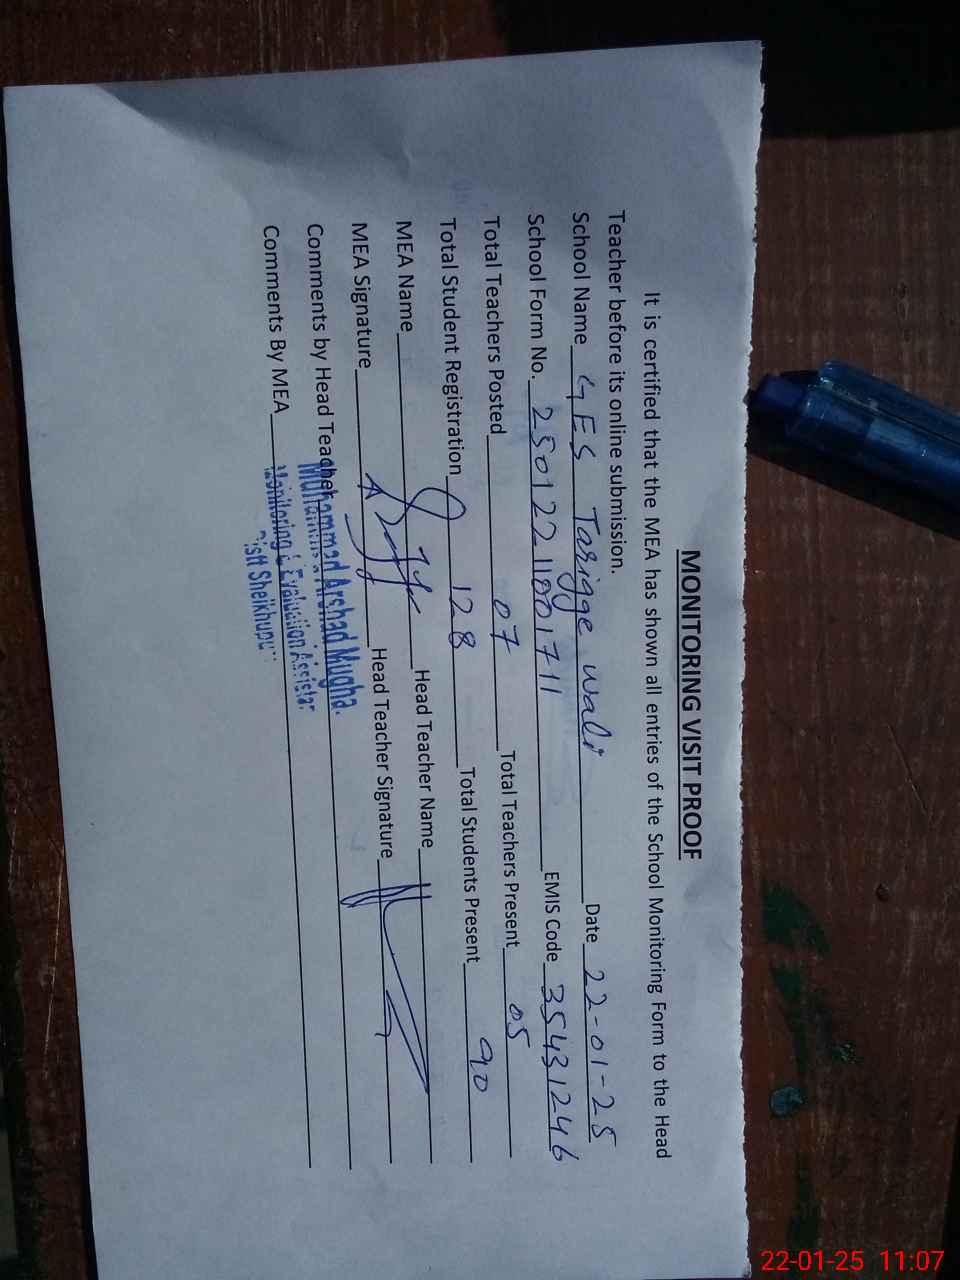 MONITORING VISIT PROOF
It is certified that the MEA has shown all entries of the School Monitoring Form to the Head
Teacher before its online submission.
School Name GES Tarigge wali Date 22-01-25
School Form No. 25012211001711 EMIS Code 35431246
Total Teachers Posted 07 Total Teachers Present 05
Total Student Registration 128 Total Students Present 90
MEA Name Head Teacher Name
MEA Signature Head Teacher Signature
Comments by Head Teacher
Muhammad Arshad Mugha
Comments By MEA
Monitoring & Evaluation Assistan
Distt Sheikhupu
22-01-25 11:07